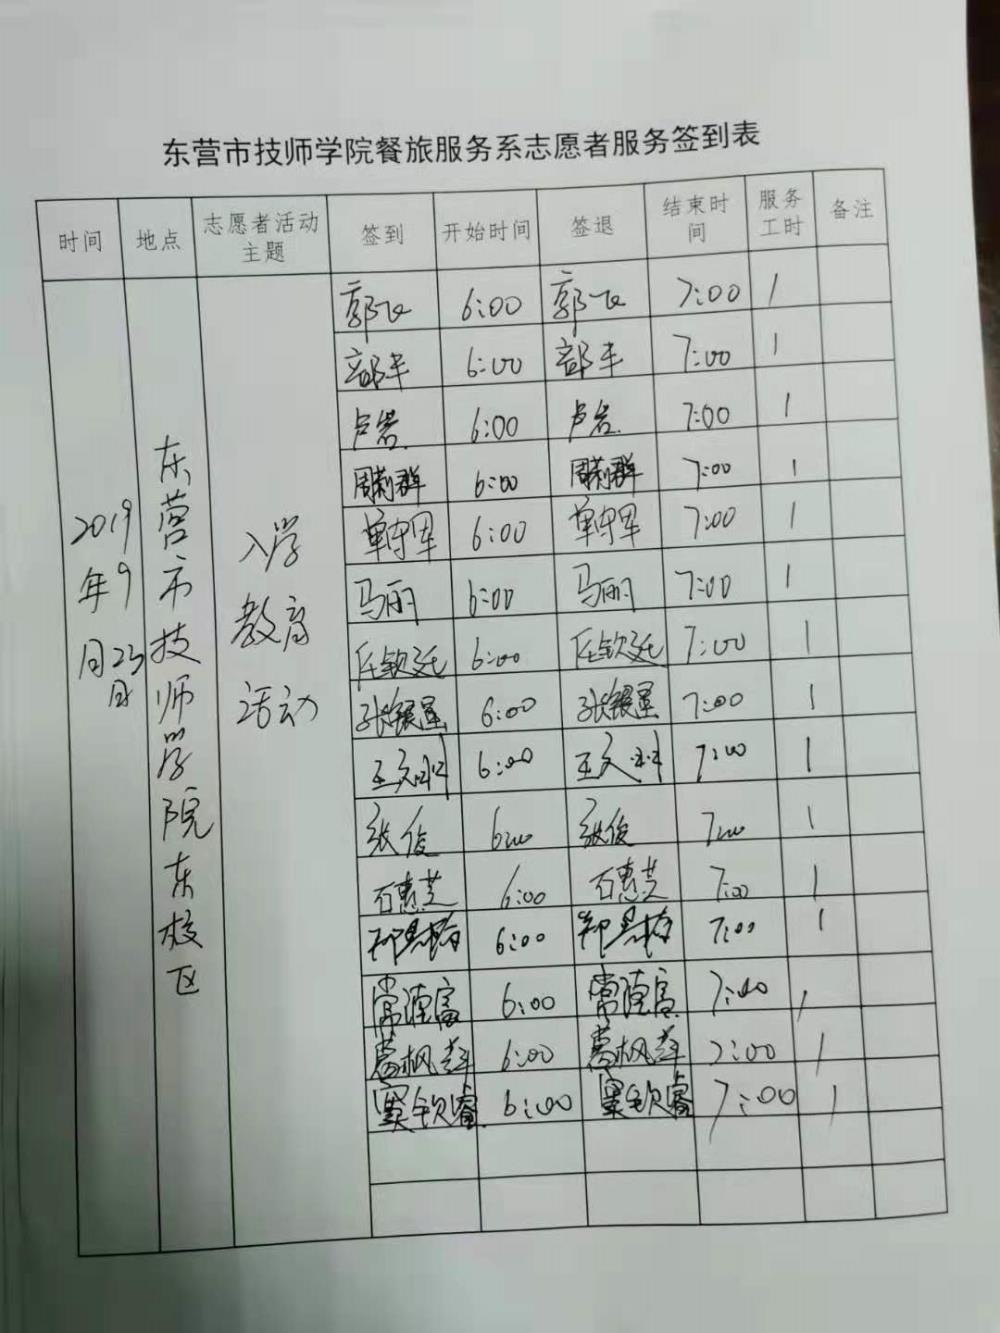 东营市技师学院餐旅服务系志愿者服务签到表
时间 地点 志愿者活动主题 签到 开始时间 签退 结束时间 服务工时 备注
2019年9月23日 东营市技师学院东校区 入学教育活动
郭飞 6:00 郭飞 7:00 1
6:00 7:00 1
卢岩 6:00 卢岩 7:00 1
周莉群 6:00 周莉群 7:00 1
单守军 6:00 单守军 7:00 1
马丽 6:00 马丽 7:00 1
任钦廷 6:00 任钦廷 7:00 1
张银星 6:00 张银星 7:00 1
王文 6:00 王文 7:00 1
张俊 6:00 张俊 7:00 1
石惠芝 6:00 石惠芝 7:00 1
6:00 7:00 1
常 富 6:00 常 富 7:00 1
葛枫萍 6:00 葛枫萍 7:00 1
窦钦睿 6:00 窦钦睿 7:00 1